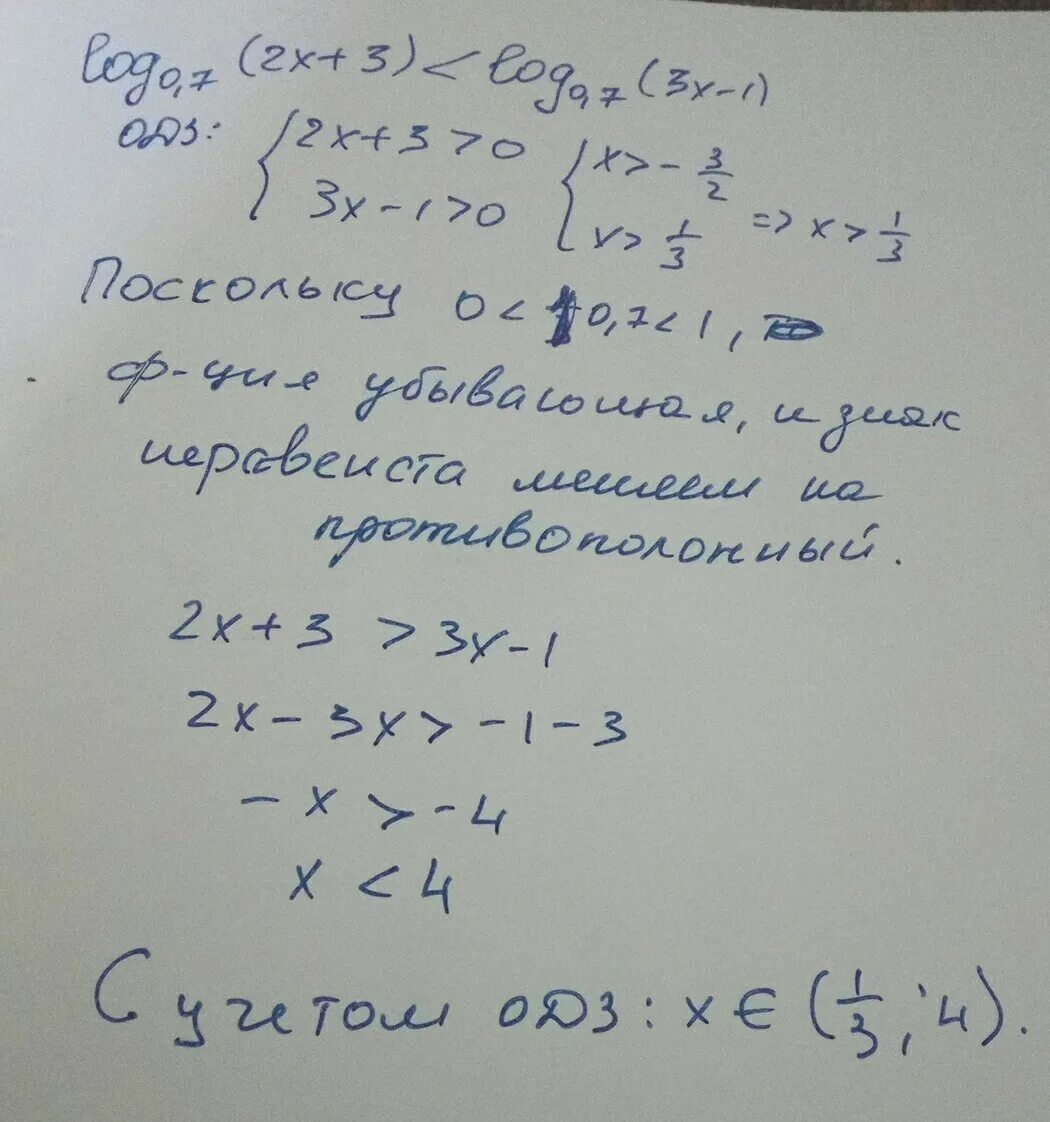 log₀,₇ (2x+3) < log₀,₇ (3x-1)
ОДЗ: { 2x+3 > 0 { x > - 3/2
3x-1 > 0 x > 1/3 => x > 1/3
Поскольку 0 < 0,7 < 1,
ф-ция убывающая, и знак
неравенста меняем на
противоположный.
2x+3 > 3x-1
2x-3x > -1-3
-x > -4
x < 4
С учетом ОДЗ: x ∈ (1/3; 4).